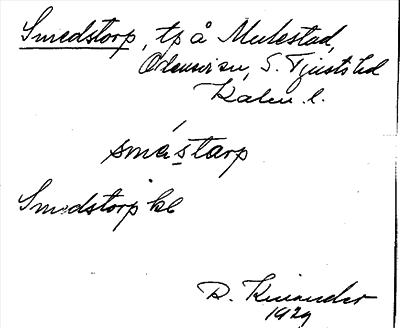 Smedstorp, tp å Mulestad,
Odensvi sn, S. Tjusts hd
Kalm. l.
smástarp
Smedstorp kl
R. Kinander
1929